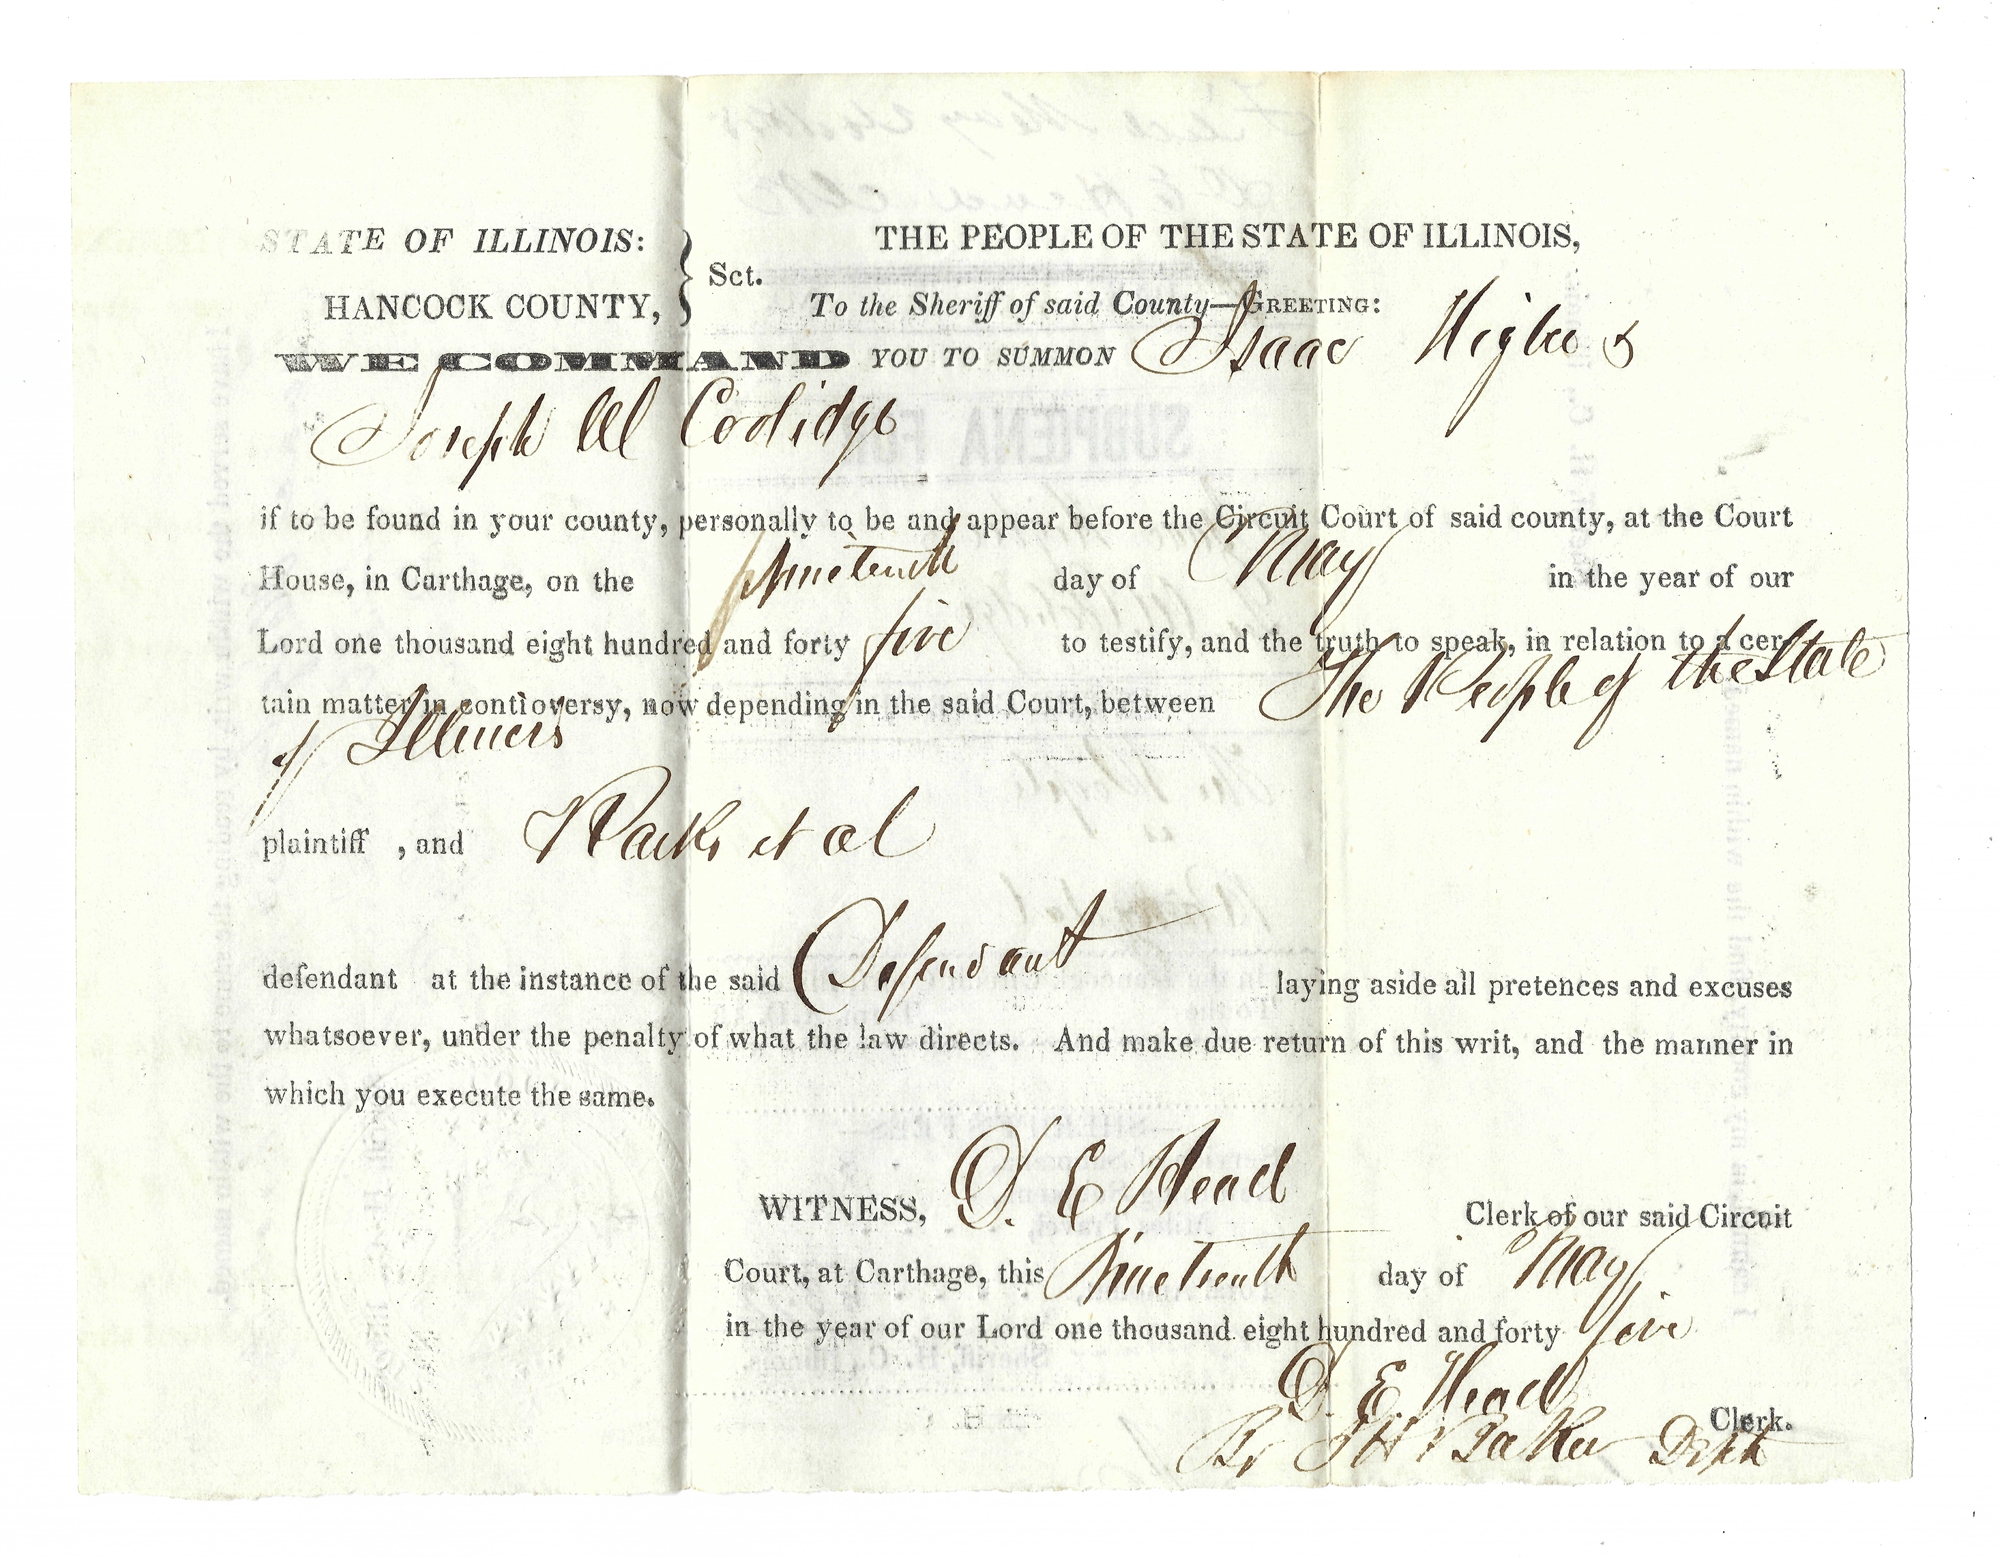 STATE OF ILLINOIS: } Sct. THE PEOPLE OF THE STATE OF ILLINOIS,
HANCOCK COUNTY, To the Sheriff of said County—GREETING:
WE COMMAND YOU TO SUMMON Isaac Higbee &
Joseph W Coolidge
if to be found in your county, personally to be and appear before the Circuit Court of said county, at the Court
House, in Carthage, on the Nineteenth day of May in the year of our
Lord one thousand eight hundred and forty five to testify, and the truth to speak, in relation to a cer-
tain matter in controversy, now depending in the said Court, between The People of the State
of Illinois
plaintiff , and et al
defendant at the instance of the said Defendant laying aside all pretences and excuses
whatsoever, under the penalty of what the law directs. And make due return of this writ, and the manner in
which you execute the same.
WITNESS, D. E Head Clerk of our said Circuit
Court, at Carthage, this Nineteenth day of May
in the year of our Lord one thousand eight hundred and forty five
D. E. Head Clerk.
By Baker Dept